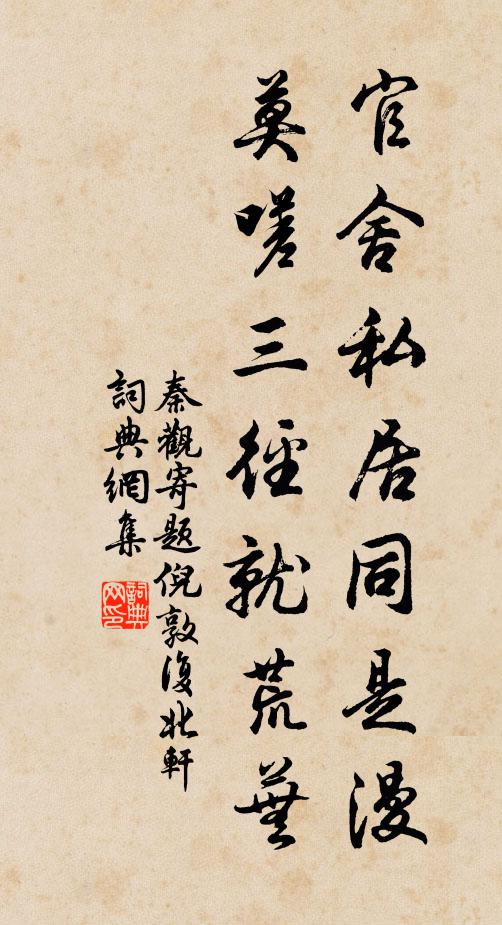 官舍私居同是漫
莫嗟三徑就荒蕪
秦觀寄題倪敦復北軒
詞典網集
詞典网印